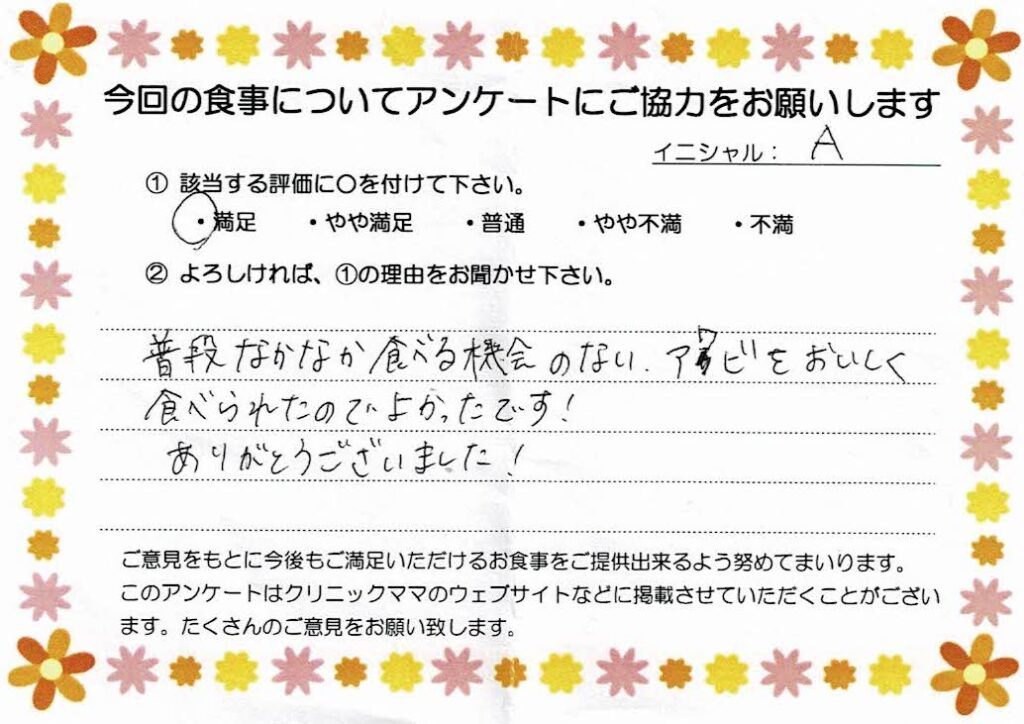 今回の食事についてアンケートにご協力をお願いします
イニシャル： A
① 該当する評価に〇を付けて下さい。
・満足 ・やや満足 ・普通 ・やや不満 ・不満
② よろしければ、①の理由をお聞かせ下さい。
普段なかなか食べる機会のない、アワビをおいしく
食べられたのでよかったです！
ありがとうございました！
ご意見をもとに今後もご満足いただけるお食事をご提供出来るよう努めてまいります。
このアンケートはクリニックママのウェブサイトなどに掲載させていただくことがござい
ます。たくさんのご意見をお願い致します。